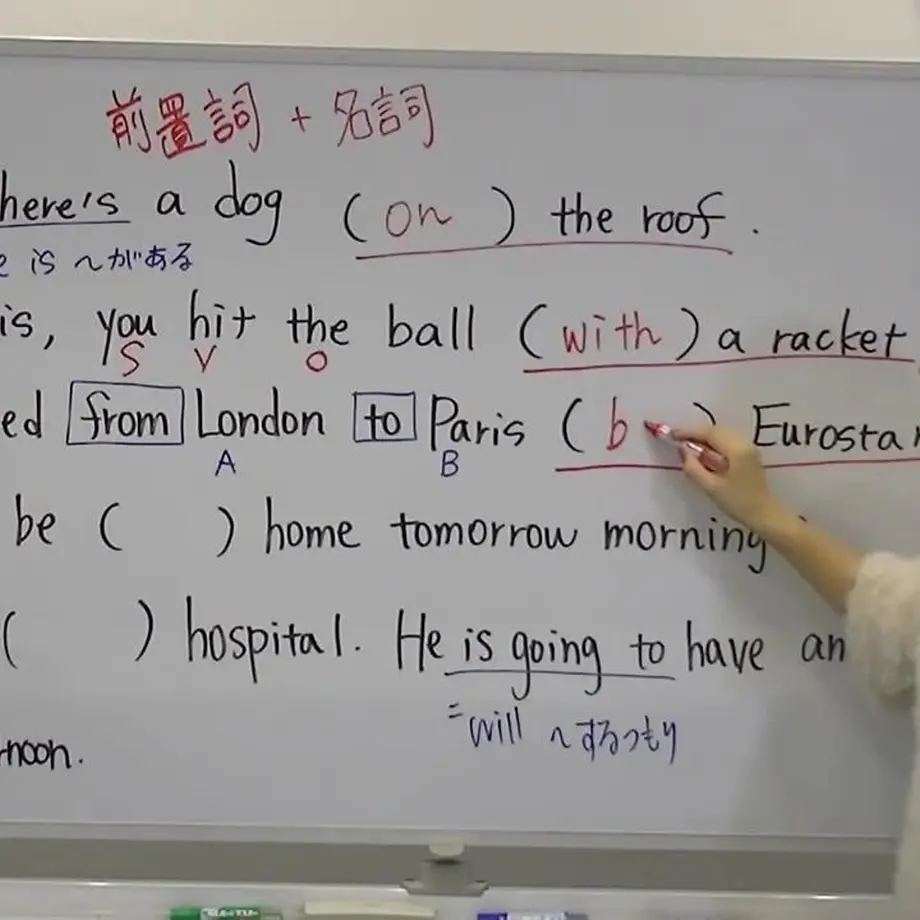 前置詞 + 名詞
here's a dog (on) the roof.
e is 〜がある
is, you hit the ball (with) a racket
S V O
ed from London to Paris (b ) Eurostar
A B
be ( ) home tomorrow morning
( ) hospital. He is going to have an
=will 〜するつもり
noon.